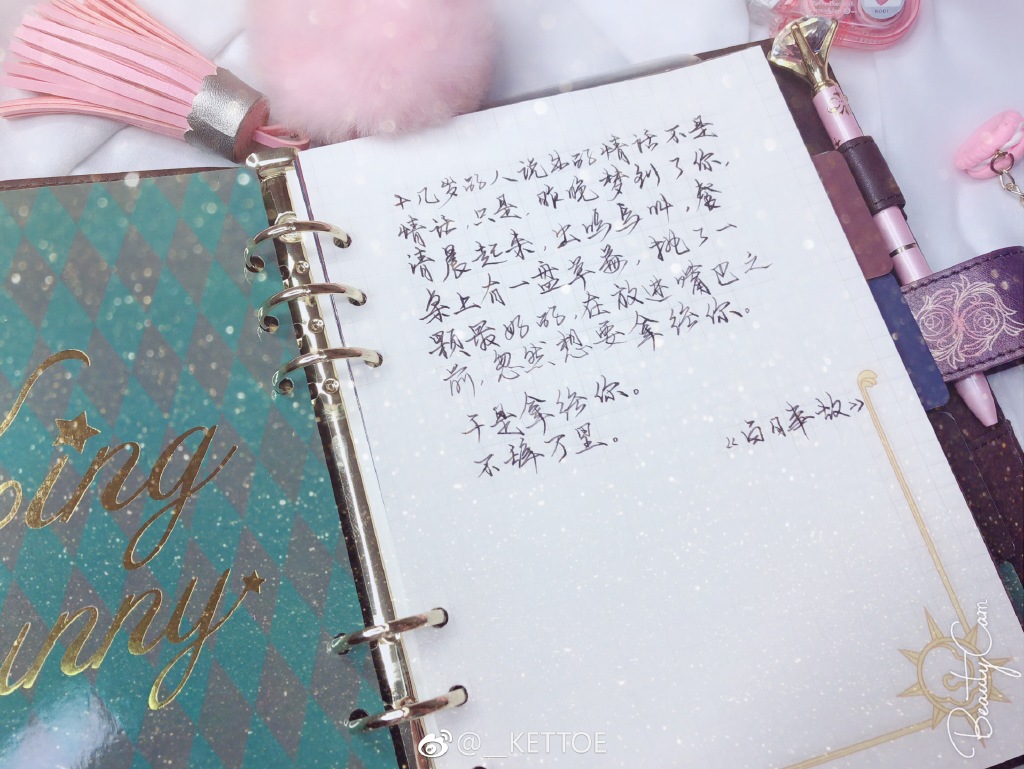 十几岁的人说出的情话不是
情话,只是,昨晚梦到了你,
清晨起来,出鸣鸟叫,餐
条上有一盘草莓,挑了一
颗最好的,在放进嘴巴之
前,忽然想要拿给你。
于是拿给你。
不辞万里。
《白月事故》
ing
unny
@__KETTOE
BeautyCam